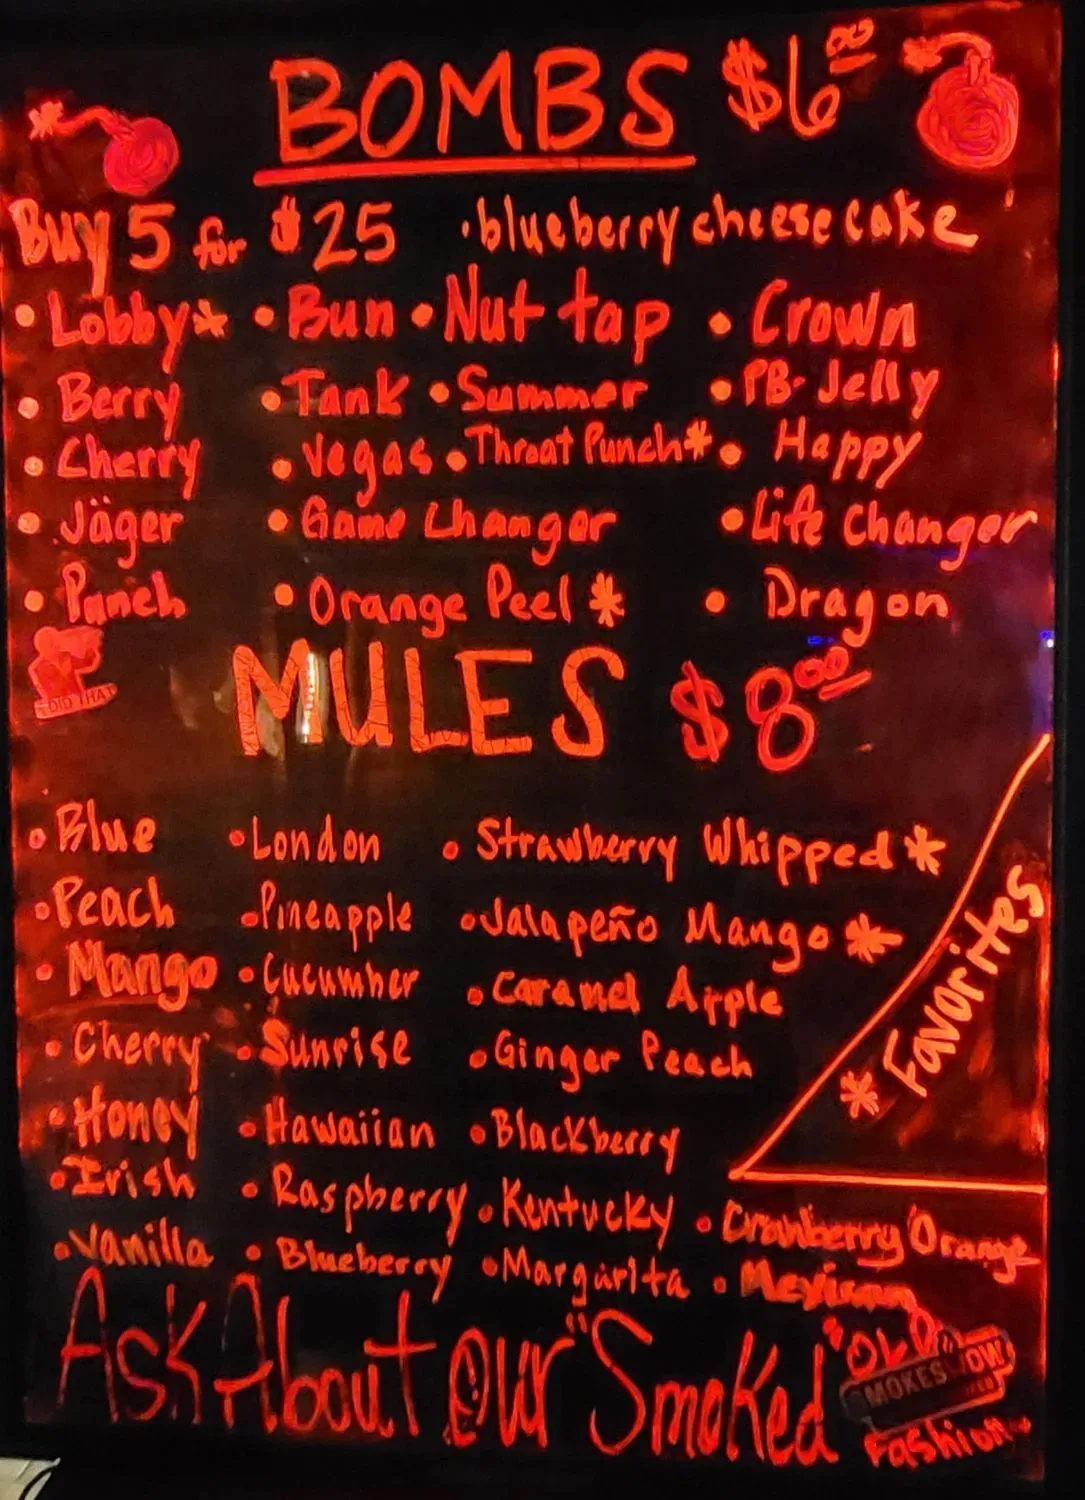 BOMBS $6.00
Buy 5 for $25 • blueberry cheesecake
• Lobby* • Bun • Nut tap • Crown
• Berry • Tank • Summer • PB-Jelly
• Cherry • Vegas • Throat Punch* • Happy
• Jäger • Game Changer • Life Changer
• Punch • Orange Peel * • Dragon
I DID THAT
MULES $8.00
• Blue • London • Strawberry Whipped *
• Peach • Pineapple • Jalapeño Mango *
• Mango • Cucumber • Caramel Apple
• Cherry • Sunrise • Ginger Peach
* Favorites
• Honey • Hawaiian • Blackberry
• Irish • Raspberry • Kentucky • Cranberry Orange
• Vanilla • Blueberry • Margarita • Mexican
Ask About Our "Smoked" "Old
Fashion"